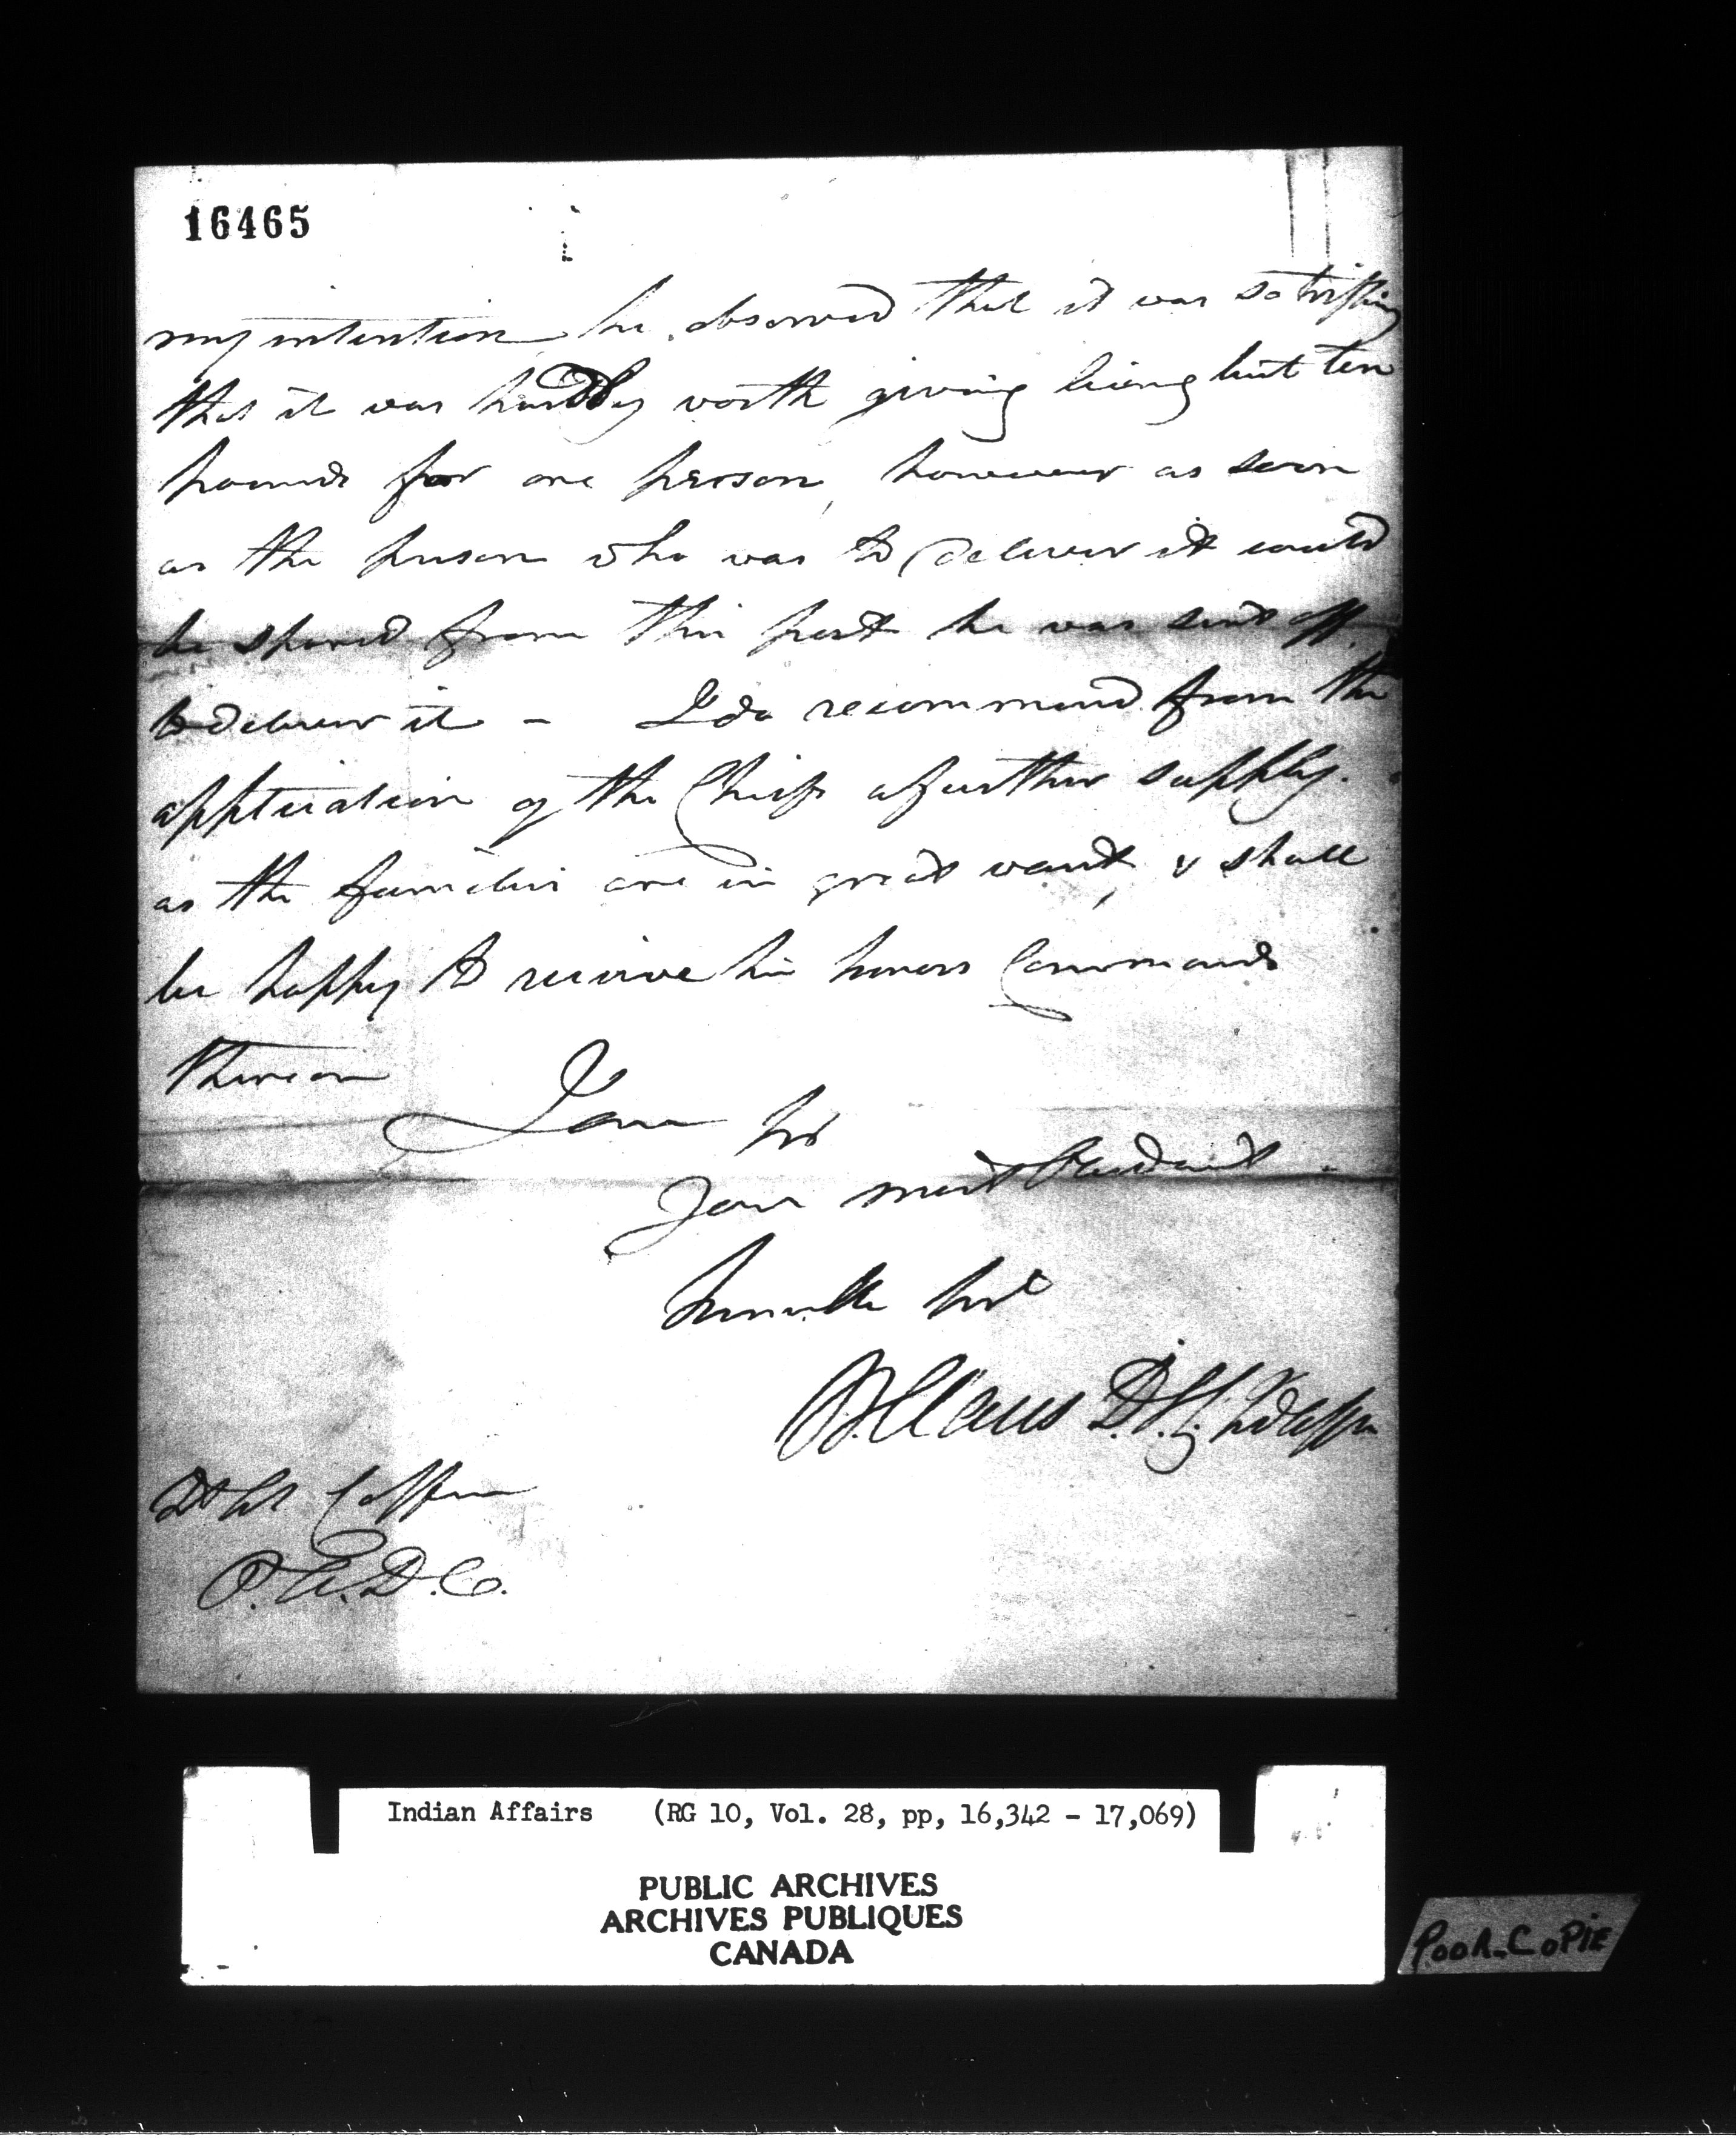 16465
my intention he observed that it was so trifling
that it was hardly worth giving being but ten
pounds for one person, however as soon
as the person who was to deliver it could
be spared from this post he was sent off
to deliver it - I do recommend from the
application of the Chiefs a further supply.
as the families are in great want, & shall
be happy to receive his honors Commands
thereon
I am Sir
Your most Obedient
humble Srt
W. Claus D.S.G.
Lt Col Coffin
P.A.D.C.
Indian Affairs (RG 10, Vol. 28, pp, 16,342 - 17,069)
PUBLIC ARCHIVES
ARCHIVES PUBLIQUES
CANADA
POOR_COPIE